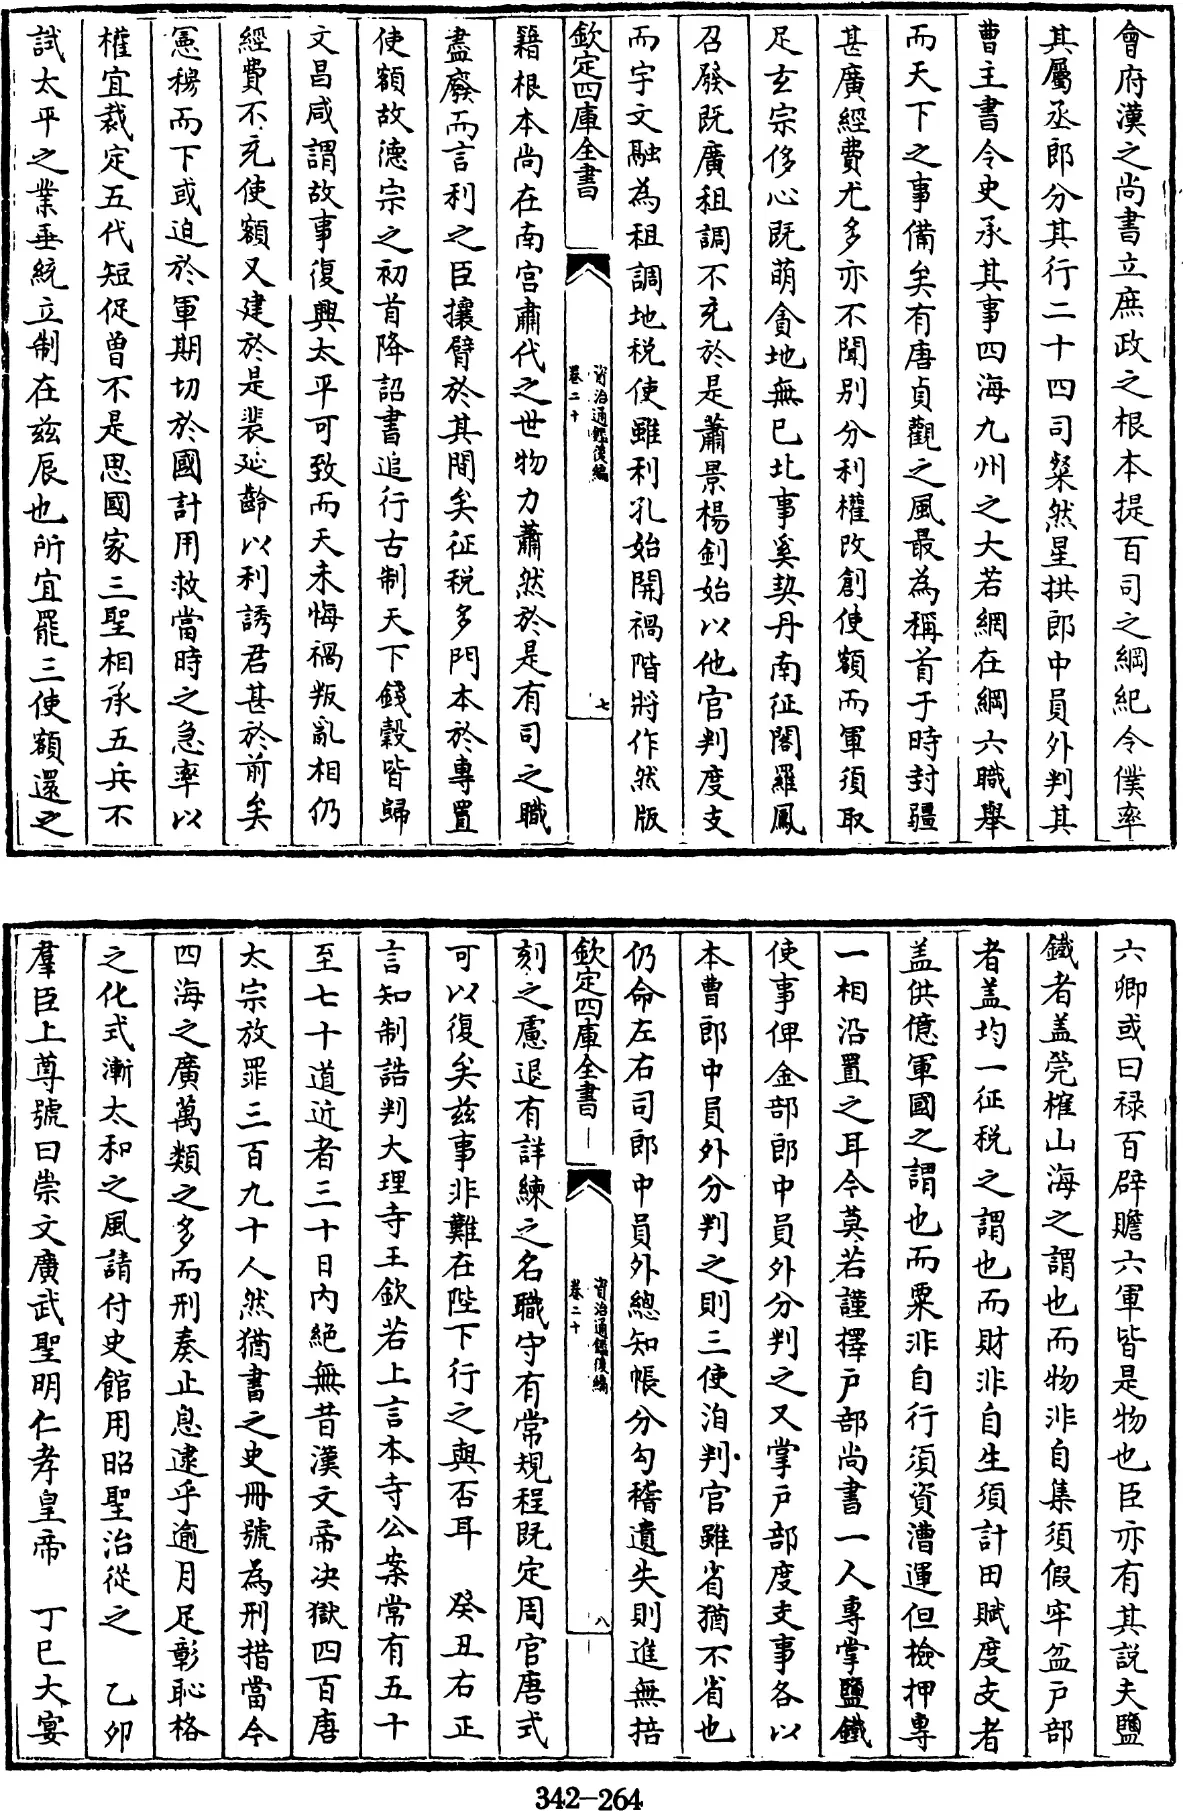 會府漢之尚書立庶政之根本提百司之綱紀令僕率
其屬丞郎分其行二十四司粲然星拱郎中員外判其
曹主書令史承其事四海九州之大若網在綱六職舉
而天下之事備矣有唐貞觀之風最為稱首于時封疆
甚廣經費尤多亦不聞別分利權改創使額而軍須取
足玄宗侈心既萌貪地無已北事奚契丹南征閣羅鳳
召發既廣租調不充於是蕭景楊釗始以他官判度支
而宇文融為租調地稅使雖利孔始開禍階將作然版
欽定四庫全書
資治通鑑後編
卷二十
七
籍根本尚在南宮肅代之世物力蕭然於是有司之職
盡廢而言利之臣攘臂於其間矣征稅多門本於專置
使額故德宗之初首降詔書追行古制天下錢穀皆歸
文昌咸謂故事復興太平可致而天未悔禍叛亂相仍
經費不充使額又建於是裴延齡以利誘君甚於前矣
憲穆而下或迫於軍期切於國計用救當時之急率以
權宜裁定五代短促曾不是思國家三聖相承五兵不
試太平之業垂統立制在茲辰也所宜罷三使額還之
六卿或曰祿百辟贍六軍皆是物也臣亦有其說夫鹽
鐵者盖筦榷山海之謂也而物非自集須假牢盆戸部
者盖均一征稅之謂也而財非自生須計田賦度支者
盖供億軍國之謂也而粟非自行須資漕運但檢押專
一相沿置之耳今莫若謹擇戸部尚書一人專掌鹽鐵
使事俾金部郎中員外分判之又掌戸部度支事各以
本曹郎中員外分判之則三使洎判官雖省猶不省也
仍命左右司郎中員外總知帳分勾稽遺失則進無掊
欽定四庫全書
資治通鑑後編
卷二十
八
刻之慮退有詳練之名職守有常規程既定周官唐式
可以復矣茲事非難在陛下行之與否耳　癸丑右正
言知制誥判大理寺王欽若上言本寺公案常有五十
至七十道近者三十日內絕無昔漢文帝决獄四百唐
太宗放罪三百九十人然猶書之史冊號為刑措當今
四海之廣萬類之多而刑奏止息逮乎逾月足彰恥格
之化式漸太和之風請付史館用昭聖治從之　乙卯
羣臣上尊號曰崇文廣武聖明仁孝皇帝　丁巳大宴
342-264